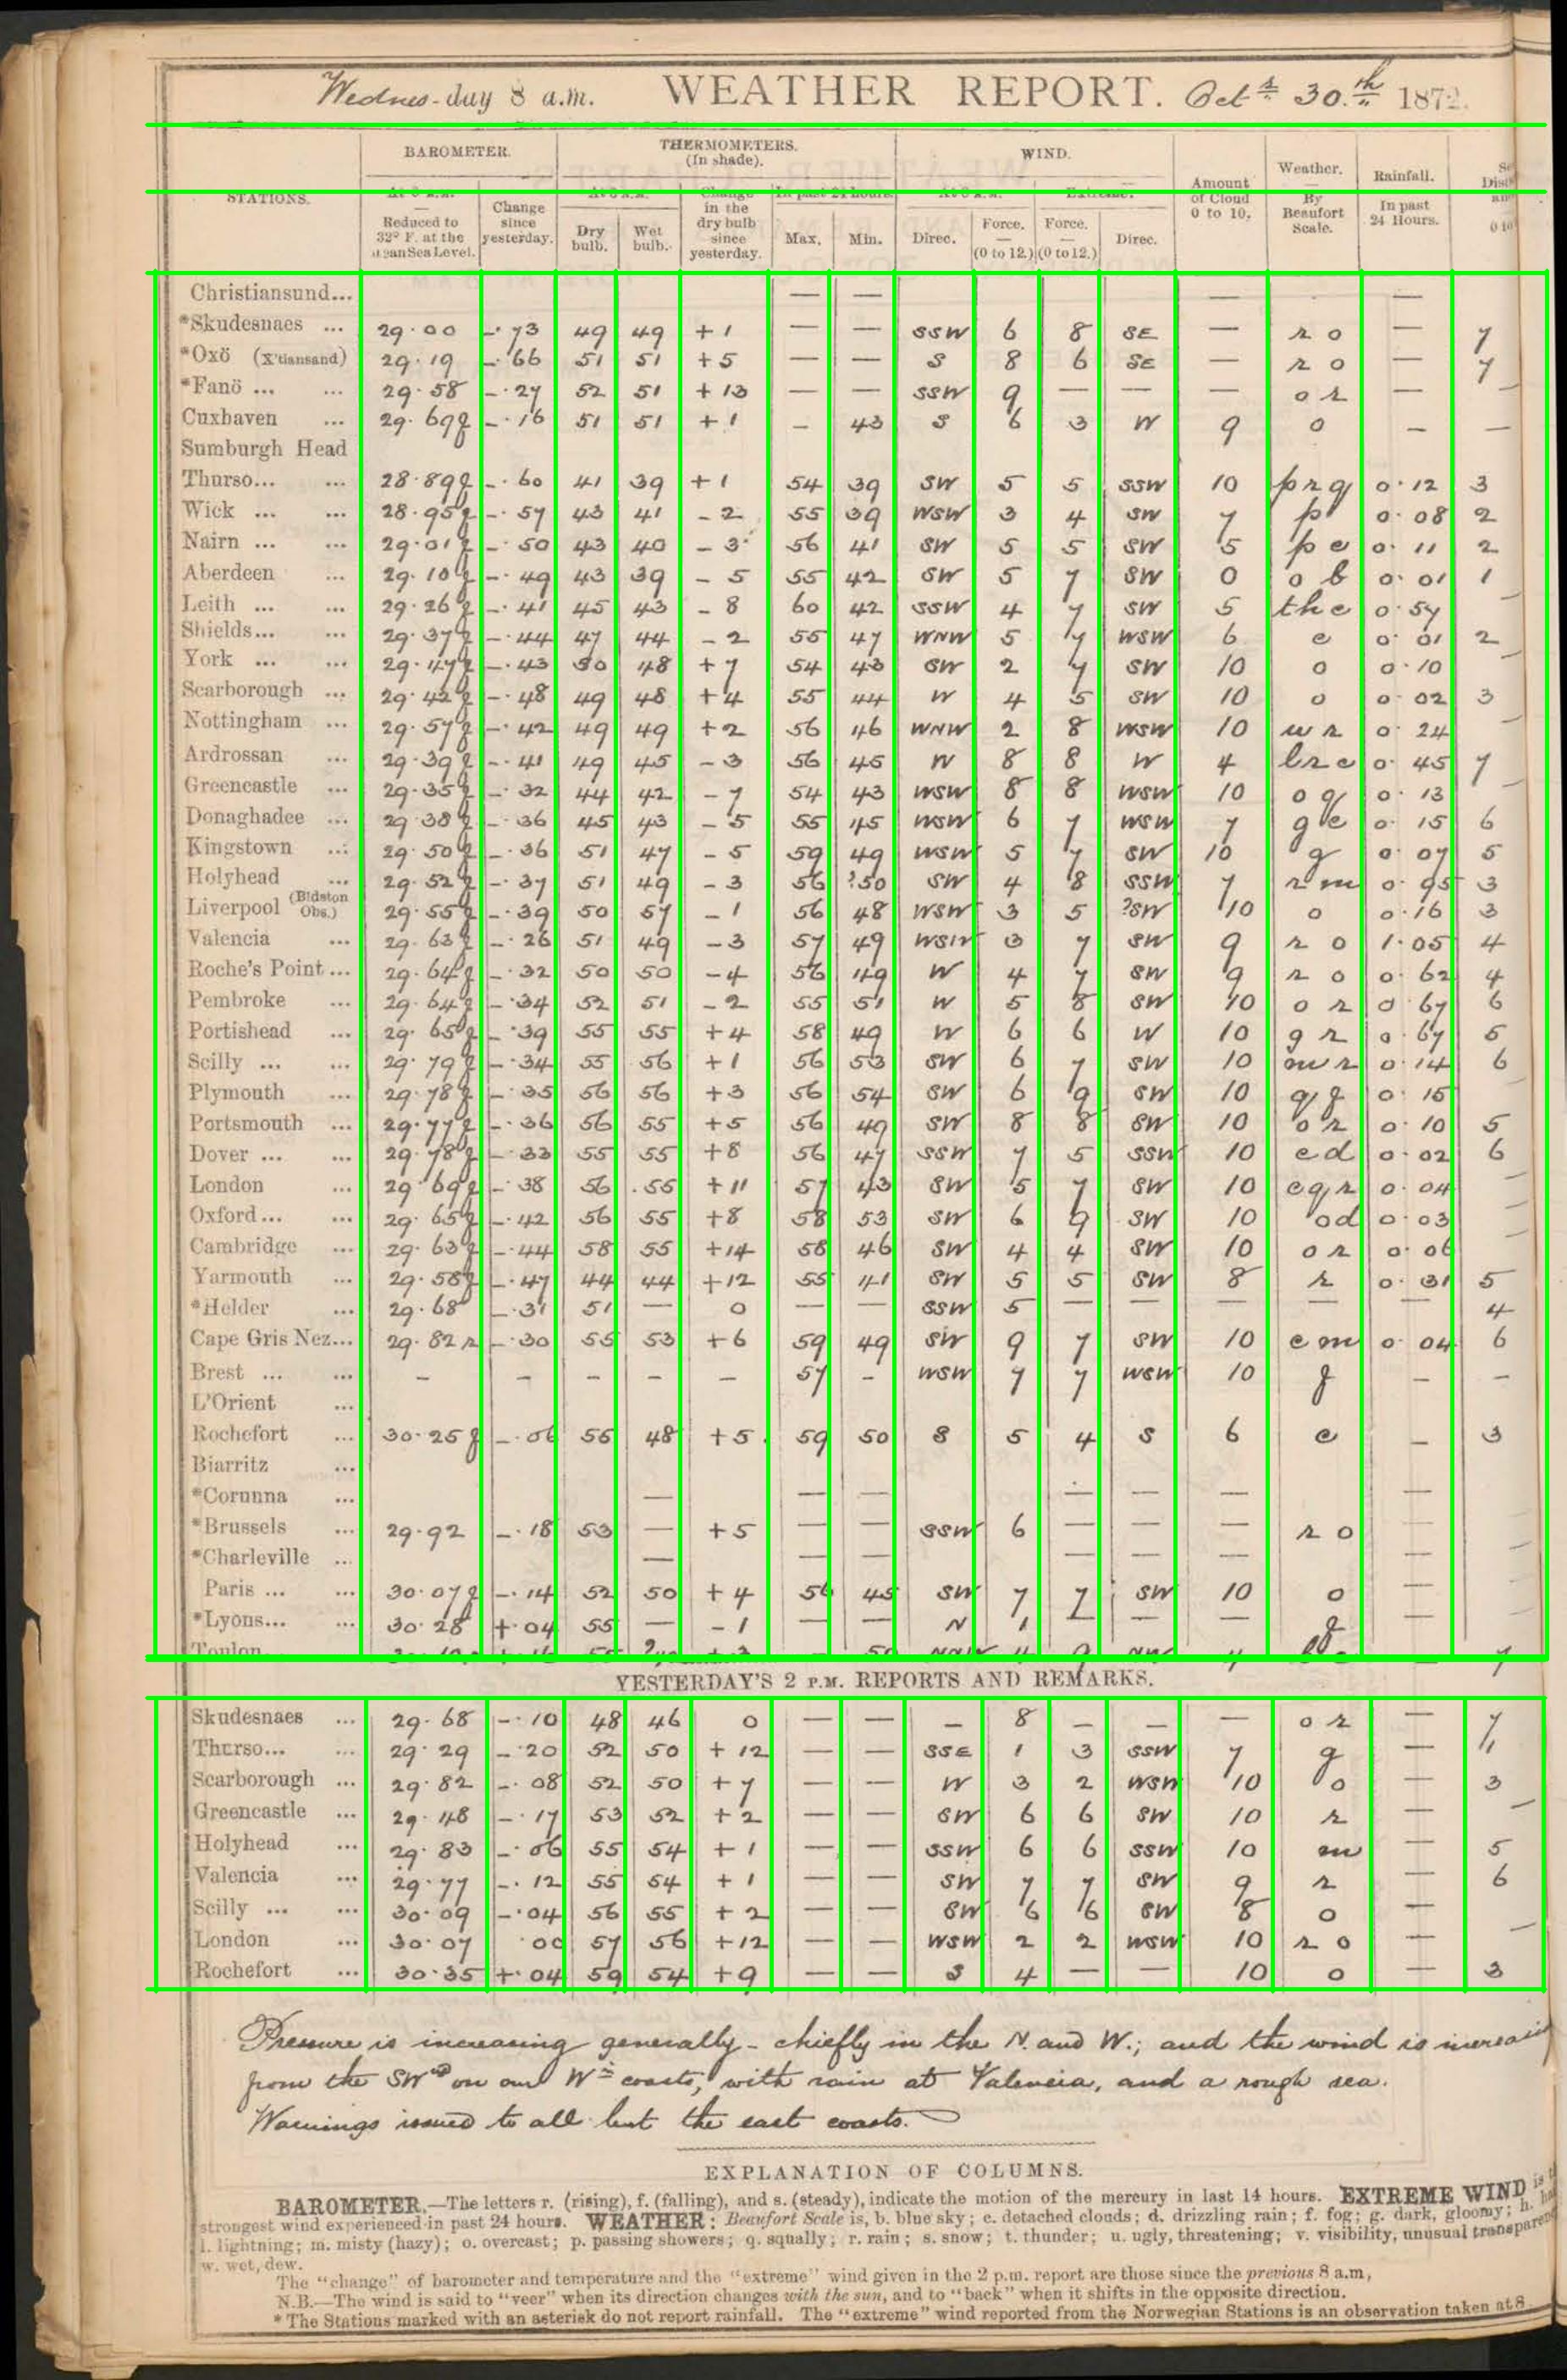 Wednes-day 8 a.m. WEATHER REPORT. Oct.r 30.th 1872.
BAROMETER. THERMOMETERS. (In shade). WIND.
STATIONS. At 8 a.m. — Reduced to 32° F. at the Mean Sea Level. Change since yesterday. At 8 a.m. Dry bulb. Wet bulb. Change in the dry bulb since yesterday. In past 24 hours. Max. Min. At 8 a.m. Direc. Force. — (0 to 12.) Extreme. Force. — (0 to 12.) Direc. Amount of Cloud 0 to 10. Weather. — By Beaufort Scale. Rainfall. In past 24 Hours.
Christiansund... — — — —
*Skudesnaes ... 29.00 -.73 49 49 +1 — — SSW 6 8 SE — r o — 7
*Oxö (X'tiansand) 29.19 -.66 51 51 +5 — — S 8 6 SE — r o — 7
*Fanö ... ... 29.58 -.27 52 51 +13 — — SSW 9 — — — o r — —
Cuxhaven ... 29.69 f -.16 51 51 +1 — 43 S 6 3 W 9 o — —
Sumburgh Head
Thurso... ... 28.89 f -.60 41 39 +1 54 39 SW 5 5 SSW 10 p r q 0.12 3
Wick ... ... 28.95 f -.57 43 41 -2 55 39 WSW 3 4 SW 7 p 0.08 2
Nairn ... ... 29.01 f -.50 43 40 -3 56 41 SW 5 5 SW 5 p c 0.11 2
Aberdeen ... 29.10 f -.49 43 39 -5 55 42 SW 5 7 SW 0 o b 0.01 1
Leith ... ... 29.26 f -.41 45 43 -8 60 42 SSW 4 7 SW 5 th c 0.57 —
Shields... ... 29.37 f -.44 47 44 -2 55 47 WNW 5 7 WSW 6 c 0.01 2
York ... ... 29.47 f -.43 50 48 +7 54 43 SW 2 7 SW 10 o 0.10 —
Scarborough ... 29.42 f -.48 49 48 +4 55 44 W 4 5 SW 10 o 0.02 3
Nottingham ... 29.57 f -.42 49 49 +2 56 46 WNW 2 8 WSW 10 w r 0.24 —
Ardrossan ... 29.39 f -.41 49 45 -3 56 45 W 8 8 W 4 l r c 0.45 7
Greencastle ... 29.35 f -.32 44 42 -7 54 43 WSW 8 8 WSW 10 o q 0.13 —
Donaghadee ... 29.38 f -.36 45 43 -5 55 45 WSW 6 7 WSW 7 g c 0.15 6
Kingstown ... 29.50 f -.36 51 47 -5 59 49 WSW 5 7 SW 10 g 0.07 5
Holyhead ... 29.52 f -.37 51 49 -3 56 ?50 SW 4 8 SSW 7 r m 0.95 3
Liverpool (Bidston Obs.) 29.55 f -.39 50 57 -1 56 48 WSW 3 5 ?SW 10 o 0.16 3
Valencia ... 29.63 f -.26 51 49 -3 57 49 WSW 3 7 SW 9 r o 1.05 4
Roche's Point ... 29.64 f -.32 50 50 -4 56 49 W 4 7 SW 9 r o 0.62 4
Pembroke ... 29.64 f -.34 52 51 -2 55 51 W 5 8 SW 10 o r 0.67 6
Portishead ... 29.65 f -.39 55 55 +4 58 49 W 6 6 W 10 g r 0.67 5
Scilly ... ... 29.79 f -.34 55 56 +1 56 53 SW 6 7 SW 10 m r 0.14 6
Plymouth ... 29.78 f -.35 56 56 +3 56 54 SW 6 9 SW 10 q f 0.15
Portsmouth ... 29.77 f -.36 56 55 +5 56 49 SW 8 8 SW 10 o r 0.10 5
Dover ... ... 29.78 f -.33 55 55 +8 56 47 SSW 7 5 SSW 10 c d 0.02 6
London ... 29.69 f -.38 56 55 +11 57 43 SW 5 7 SW 10 c q r 0.04 —
Oxford... ... 29.65 f -.42 56 55 +8 58 53 SW 6 9 SW 10 o d 0.03 —
Cambridge ... 29.63 f -.44 58 55 +14 58 46 SW 4 4 SW 10 o r 0.06 —
Yarmouth ... 29.58 f -.47 44 44 +12 55 41 SW 5 5 SW 8 r 0.31 5
*Helder ... 29.68 -.31 51 — 0 — — SSW 5 — — — — — 4
Cape Gris Nez... 29.82 r -.30 55 53 +6 59 49 SW 9 7 SW 10 c m 0.04 6
Brest ... ... — — — — — 57 — WSW 7 7 WSW 10 f — —
L'Orient ...
Rochefort ... 30.25 f -.06 55 48 +5 59 50 S 5 4 S 6 c — 3
Biarritz ...
*Corunna ... — — — — — — —
*Brussels ... 29.92 -.18 53 — +5 — — SSW 6 — — — r o — —
*Charleville ... — — — — — — — —
Paris ... ... 30.07 f -.14 52 50 +4 56 45 SW 7 7 SW 10 o —
*Lyons... ... 30.28 +.04 55 — -1 — — N 1 — — — f —
Toulon
YESTERDAY'S 2 P.M. REPORTS AND REMARKS.
Skudesnaes ... 29.68 -.10 48 46 0 — — — 8 — — — o r — 7
Thurso... ... 29.29 -.20 52 50 +12 — — SSE 1 3 SSW 7 g — 1
Scarborough ... 29.82 -.08 52 50 +7 — — W 3 2 WSW 10 o — 3
Greencastle ... 29.48 -.17 53 52 +2 — — SW 6 6 SW 10 r — —
Holyhead ... 29.83 -.06 55 54 +1 — — SSW 6 6 SSW 10 m — 5
Valencia ... 29.77 -.12 55 54 +1 — — SW 7 7 SW 9 r — 6
Scilly ... ... 30.09 -.04 56 55 +2 — — SW 6 6 SW 8 o —
London ... 30.07 .00 57 56 +12 — — WSW 2 2 WSW 10 r o — —
Rochefort ... 30.35 +.04 59 54 +9 — — S 4 — — 10 o — 3
Pressure is increasing generally - chiefly in the N. and W.; and the wind is increasing
from the SWd on our Wn coasts, with rain at Valencia, and a rough sea.
Warnings issued to all but the east coasts.
EXPLANATION OF COLUMNS.
BAROMETER.—The letters r. (rising), f. (falling), and s. (steady), indicate the motion of the mercury in last 14 hours. EXTREME WIND is
strongest wind experienced in past 24 hours. WEATHER: Beaufort Scale is, b. blue sky; c. detached clouds; d. drizzling rain; f. fog; g. dark, gloomy; h.
l. lightning; m. misty (hazy); o. overcast; p. passing showers; q. squally; r. rain; s. snow; t. thunder; u. ugly, threatening; v. visibility, unusual
w. wet, dew.
The "change" of barometer and temperature and the "extreme" wind given in the 2 p.m. report are those since the previous 8 a.m,
N.B.—The wind is said to "veer" when its direction changes with the sun, and to "back" when it shifts in the opposite direction.
* The Stations marked with an asterisk do not report rainfall. The "extreme" wind reported from the Norwegian Stations is an observation taken at 8